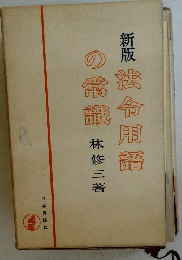 新版
法令用語
の常識
林修三著
日本評論社